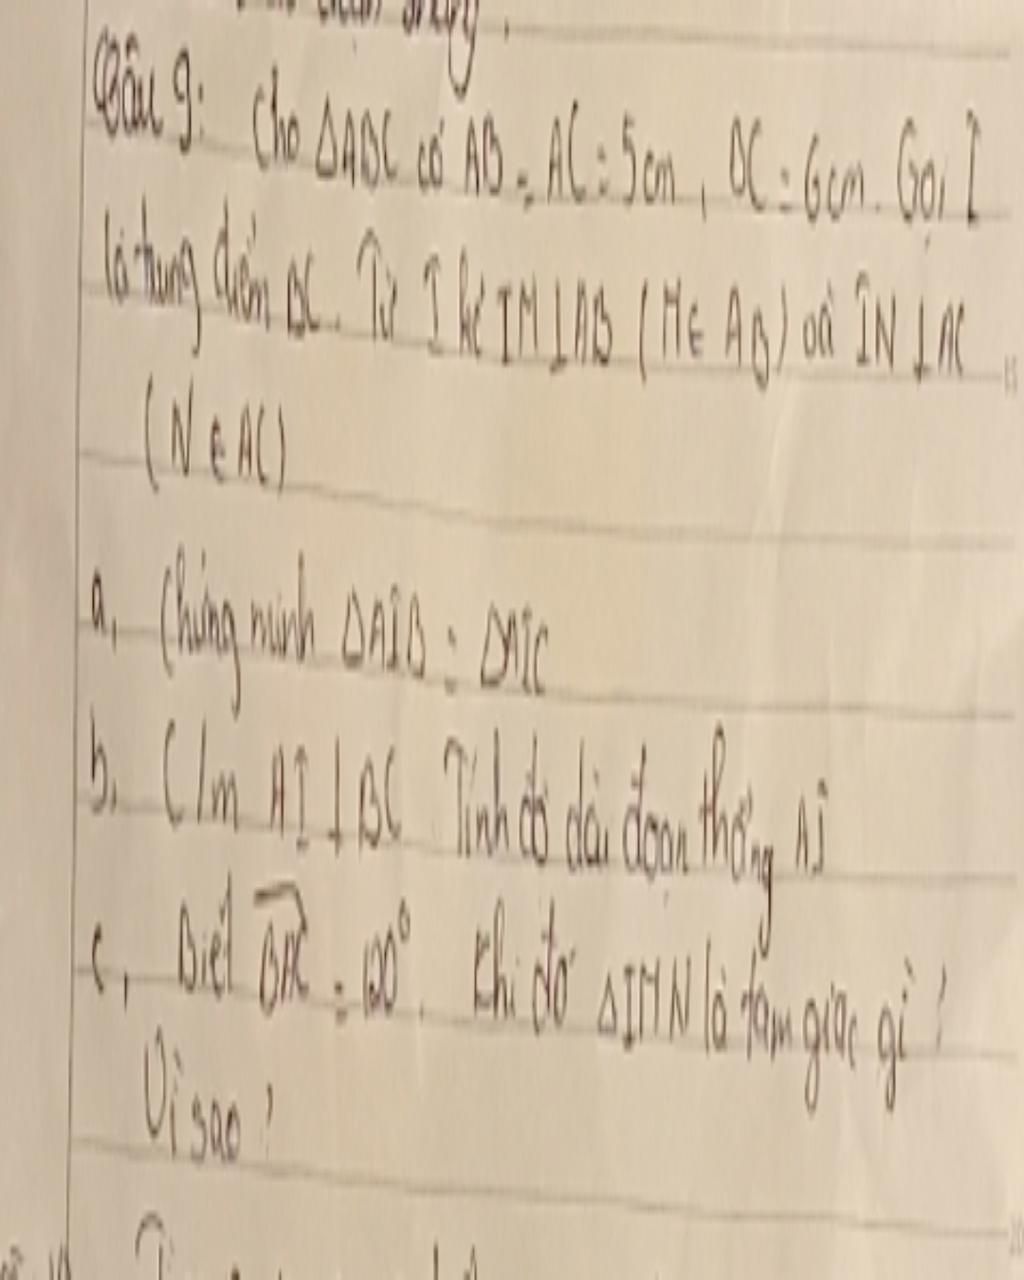 Câu 9: Cho ΔABC có AB = AC = 5cm, BC = 6cm. Gọi I
là trung điểm BC. Từ I kẻ IM ⊥ AB (M ∈ AB) và IN ⊥ AC
(N ∈ AC)
a, Chứng minh ΔAIB = ΔAIC
b, C/m AI ⊥ BC Tính độ dài đoạn thẳng AI
c, Biết BAC = 120°. Khi đó ΔIMN là tam giác gì?
Vì sao?